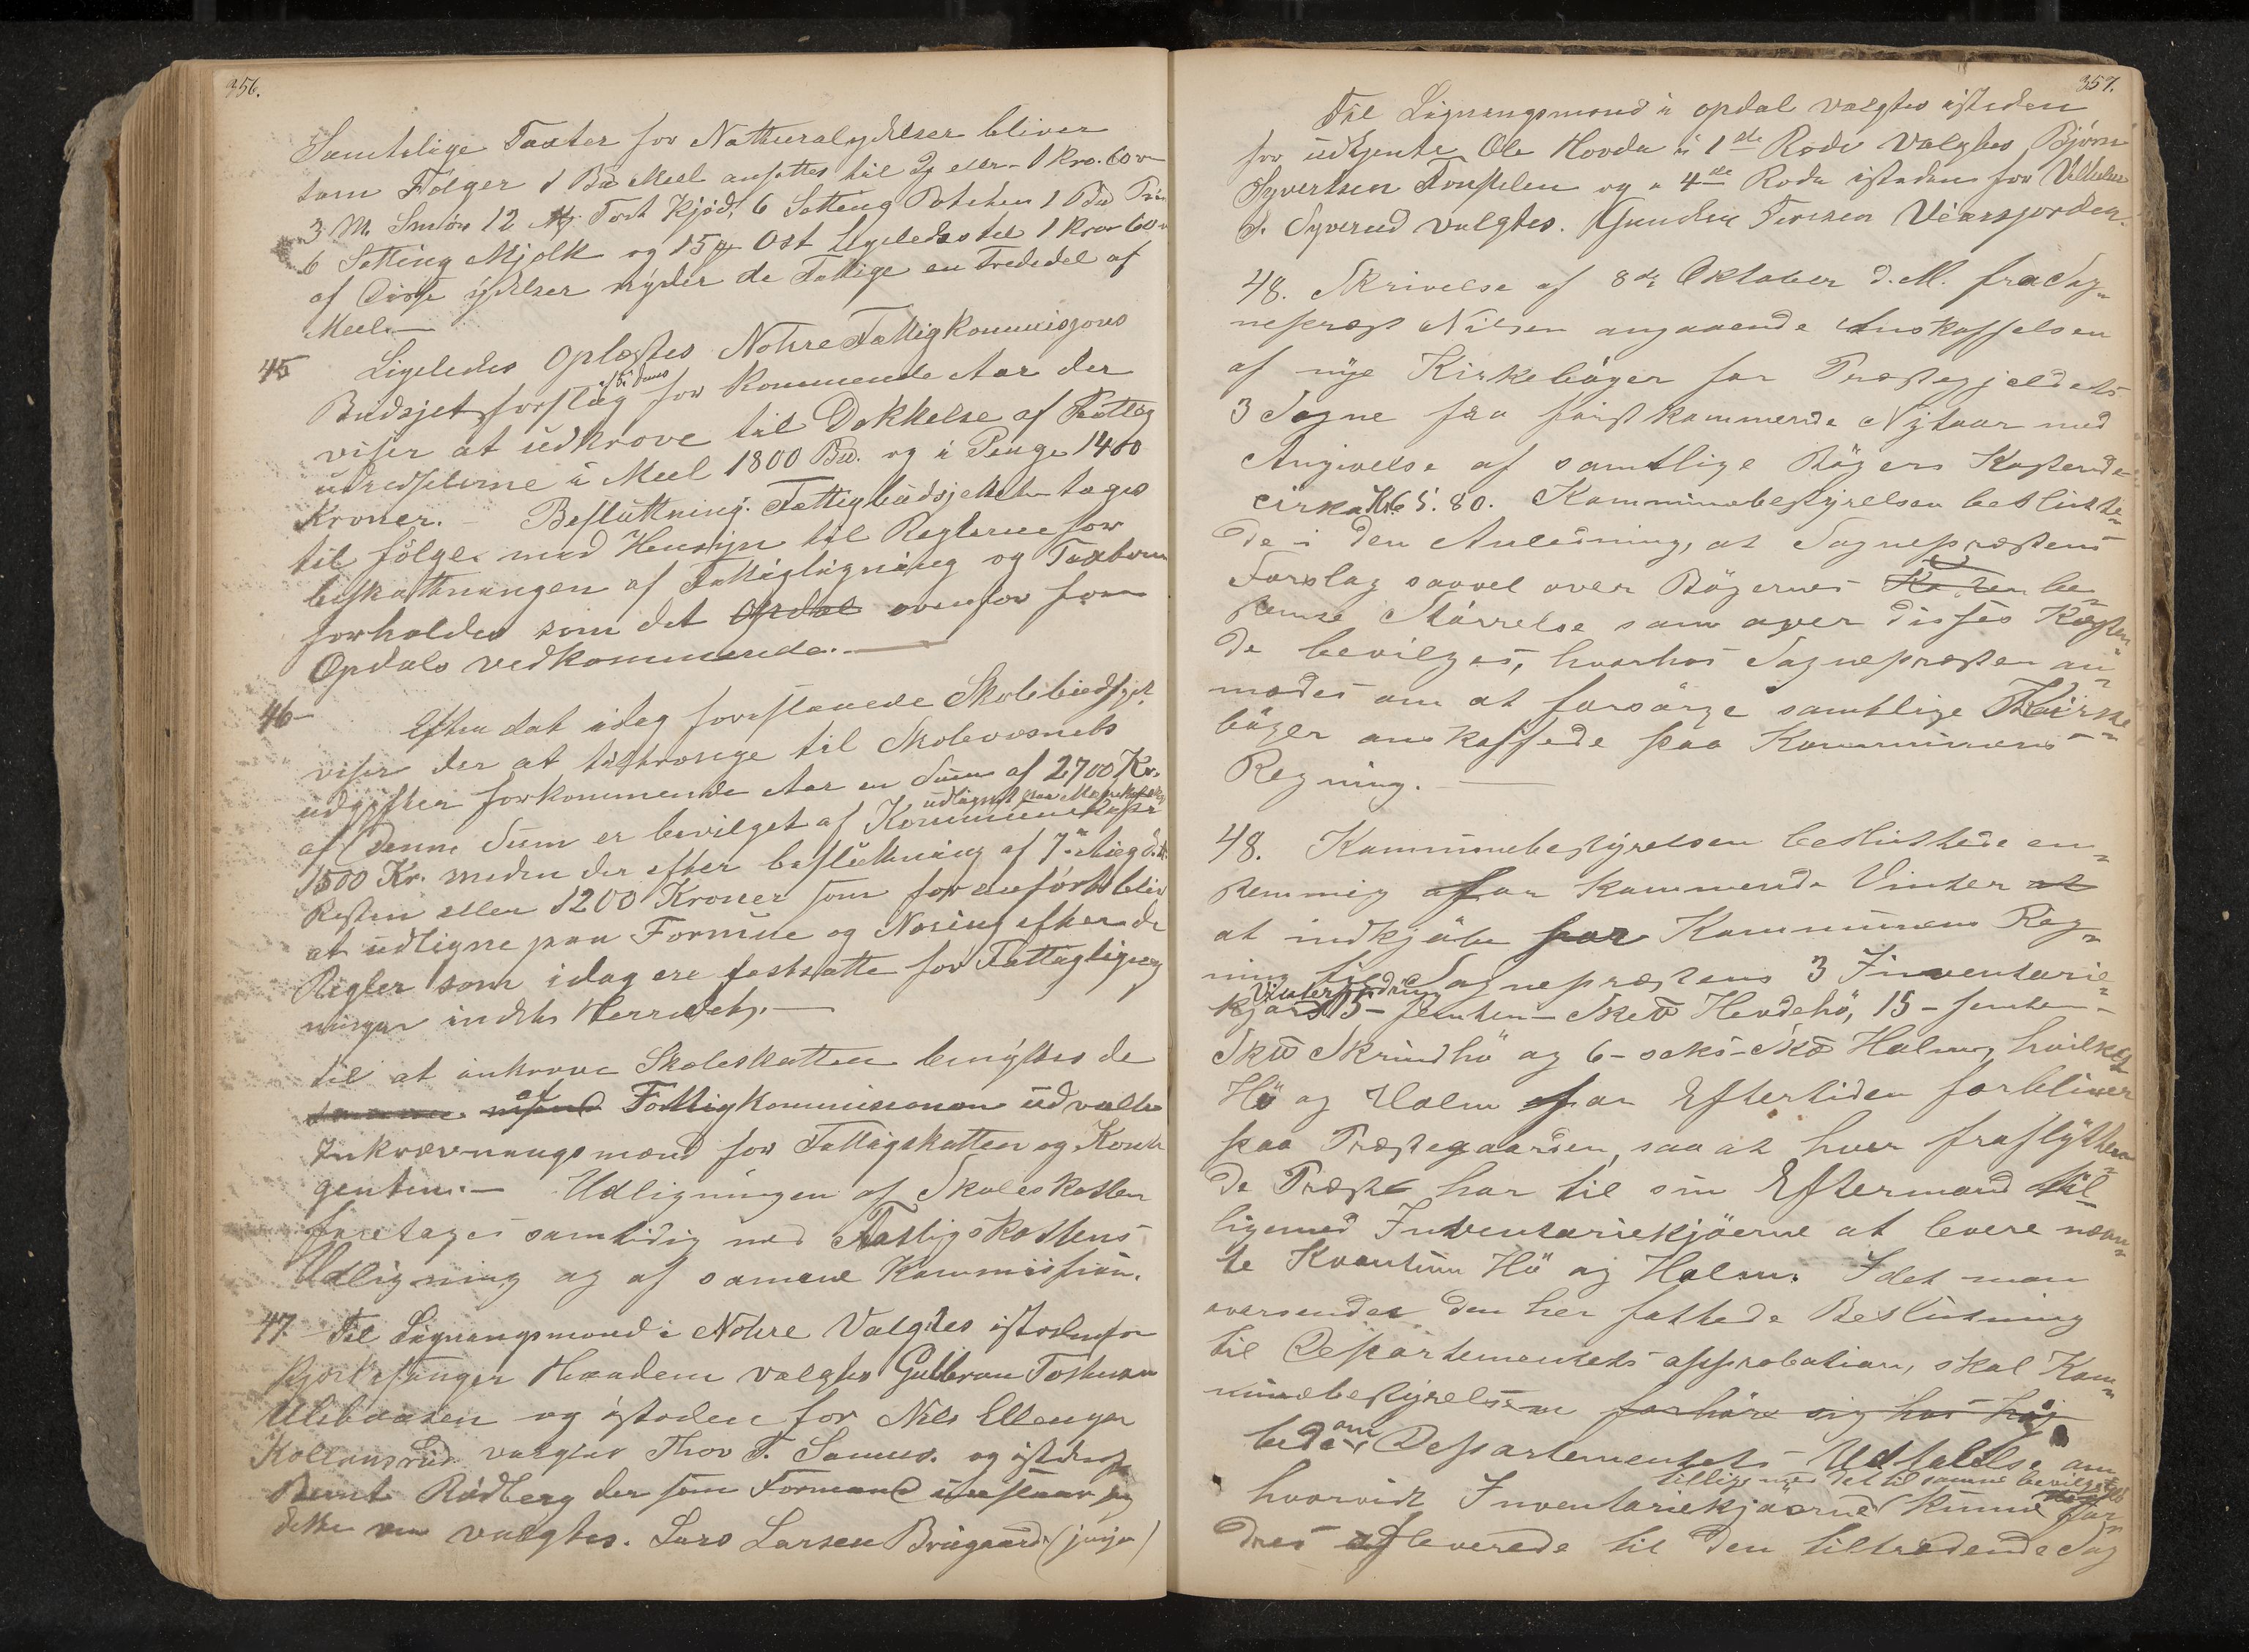 356.
Samtelige Taxter for Natturalydelser bliver
som Følger 1 Bd Meel ansettes til 2 eller 1 Kro. 60
3 M. Smør 12 Tørt Kjød, 6 Setting Poteten 1 Bd
6 Setting Mjølk og 15 Ost Ligeledes til 1 Kro 60
af Disse ydelser nyder de Fattige en Trededel af
Meel.—
45 Ligeledes Oplæstes Nohre Fattigkommisjons
Budsjetforslag for kommende Aar der
viser at udkræve til Dækkelse af Fattig
udredselerne i Meel 1800 Bd. og i Penge 1400
Kroner. — Besluttning. Fattigbudsjettet tages
til følge med Hensyn til Reglerne for
beskattningen af Fattigligning og Taxterne
forholdes som det Opdal ovenfor for
Opdals vedkommende.—
46— Efter det idag foreslaaede Skolebudsjet
viser der at tiltrænge til Skolevæsnets
udgifter forkommende Aar en Sum af 2700 Kr.
af Denne Sum er bevilget af Kommunekassen
1500 Kr. meden der efter besluttning af 7de
Resten eller 1200 Kroner som for anførts bliv
at udligne paa Formue og Næring efter de
Regler som idag ere fastsatte for Fattiglign
ningen indets Herredets.—
til at inkræve Skoleskatten benyttes de
af Fattigkommissionen udvalte
Inkrævnungsmænd for Fattigskatten og Konti
genten.— Udligningen af Skoleskatten
foretages samtidig med Fattigskattens
Udligning og af samme Kommission.
47. Til Ligningsmænd i Nohre Valgtes istedenfor
Haadem valgtes Gulbran Tostensen
Ulsbaasen og isteden for Nils Ellengen
Kollensrud valgtes Thor T. Sannes. og isteden
Bernt Rødberg der som Formand
dette valgtes. Lars Larsen Brügaard (junjor)
357.
Til Ligningsmænd i opdal valgtes isteden
for udtjente Ole Hovda i 1ste Rode valgtes Bjørn
Syvertsen Tonselen og i 4de Rode isteden for
S. Syverud valgtes. Gunder Versjorden.
48. Skrivelse af 8de Oktober d. A. fra Sog-
neprest Nilsen angaaende Anskaffelsen
af nye Kirkebøger for Præstegjeldets
3 Sogne fra førstkommende Nytaar med
Angivelse af samtlige Bøgers Kostende
cirka Kr. 65.80. Kommunebestyrelsen beslutte-
de i den Anledning, at Sognepræstens
Forslag saavel over Bøgernes be-
stemte Størrelse som over disses Kosten-
de bevilges, hvorhos Sognepræsten an-
modes om at forsørge samtlige Kirke-
bøger anskaffede paa Kommunens
Regning. —
48. Kommunebestyrelsen besluttede en-
stemmig for kommende Vinter at
at indkjøbe for Kommunens Reg-
ning til Sognepræstens 3 Inventarie-
Vinterfodring
kjør 15 – femten – Skd Hevdehø, 15 – femten –
Skd Skrindhø og 6 – seks – Skd Halm, hvilket
Hø og Halm for Eftertiden forbliver
paa Præstegaarden, saa at hver fraflytten-
de Præst har til sin Eftermand til-
ligemed Inventariekjøerne at levere nævn-
te Kvantum Hø og Halm. Idet man
oversender den her fattede Beslutning
til Departementets approbation, skal Kom-
munebestyrelsen forhøre sig hos høj
bede om Departementets Udtalelse om
tilligemed det til samme bevilgede
hvorvidt Inventariekjøerne kunne for-
dres afleverede til den tiltrædende Sog